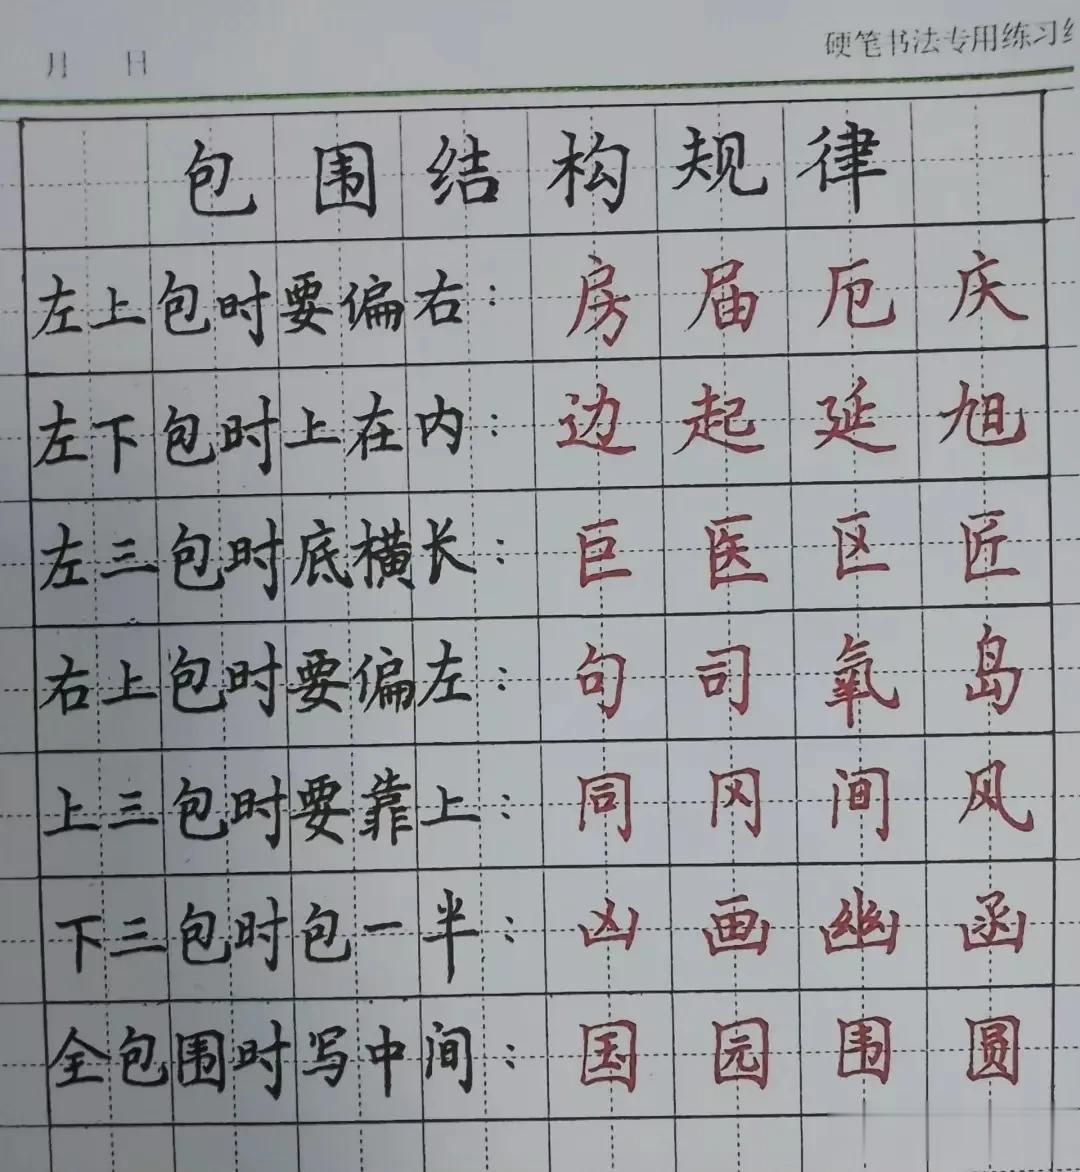 月 日
硬笔书法专用练习
包围结构规律
左上包时要偏右：房届厄庆
左下包时上在内：边起延旭
左三包时底横长：巨医区匠
右上包时要偏左：句司氧岛
上三包时要靠上：同冈间风
下三包时包一半：凶画幽函
全包围时写中间：国园围圆